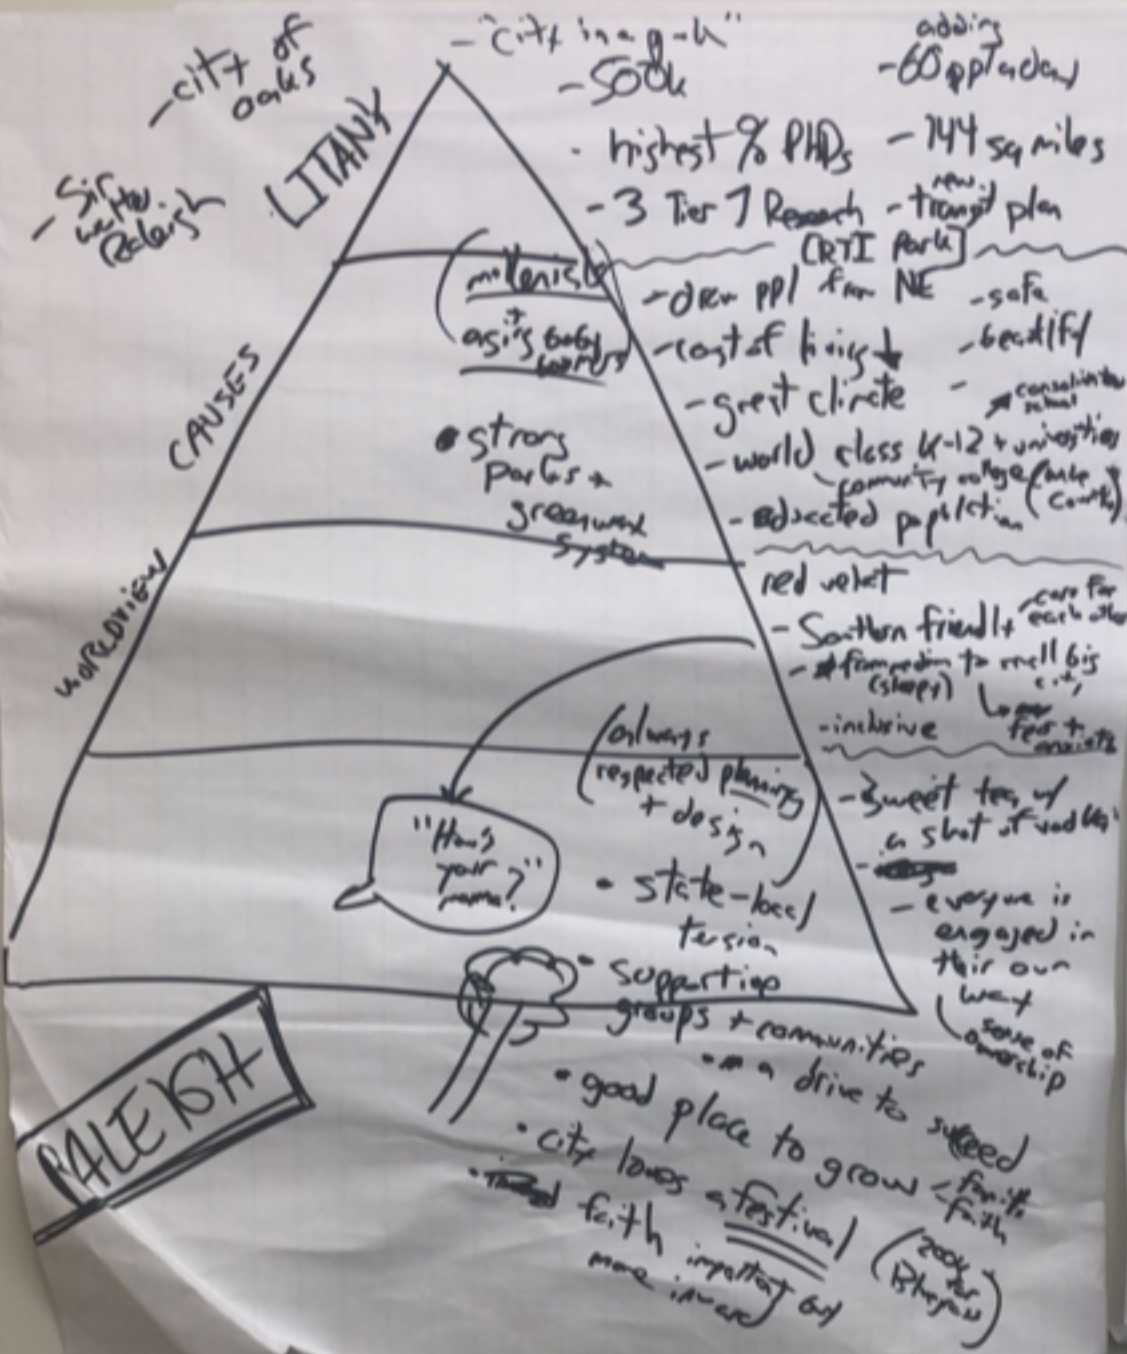 - city of
oaks
- Sir
Walter
Raleigh
LITANY
- "city in a
- 500k
adding
- 60 ppl a day
· highest % PHDs
- 144 sq miles
- 3 Tier 1 Research
new
- transit plan
[RTI Park]
millenials
+
aging baby
boomers
- draw ppl from NE
- safe
- cost of living ↓
- beautiful
- great climate
-
CAUSES
• strong
parks +
greenway
system
- world class K-12 + universities
community college (Wake
County)
- educated population
WORLDVIEW
red velvet
- Southern friendly
care for
each other
- from to small big
city
(sleepy)
fear +
anxiety
- inclusive
(always
respected planning
+ design
"How's
your
mama?"
• state-local
tension
- Sweet tea w/
a shot of vodka
- everyone is
engaged in
their own
way
sense of
ownership
• supporting
groups + communities
• a drive to succeed
RALEIGH
• good place to grow
- family
- faith
• city loves a festival
(200k
for
Bluegrass)
• faith important but
more inward